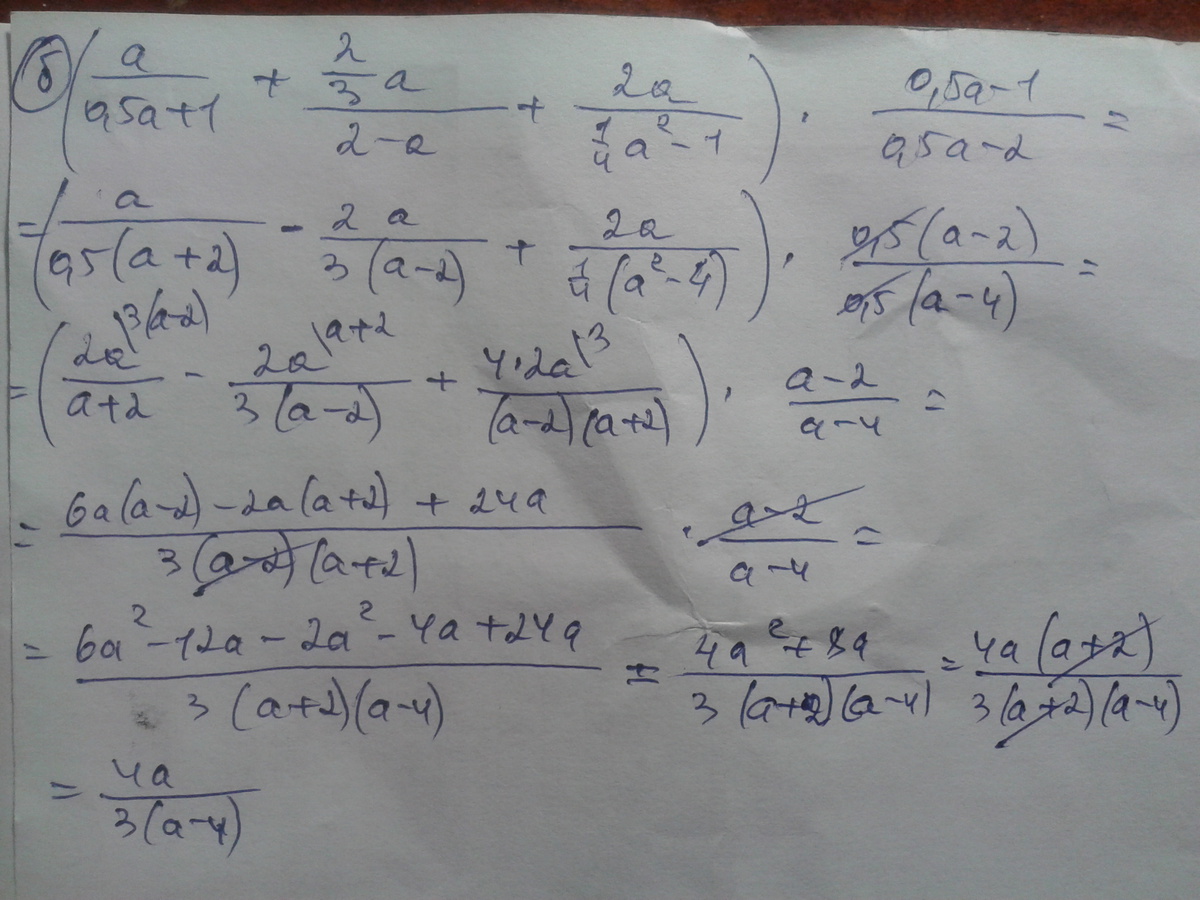 б) (a/(0,5a+1) + (2/3 a)/(2-a) + 2a/(1/4 a² - 1)) · (0,5a-1)/(0,5a-2) =
= (a/(0,5(a+2)) - 2a/(3(a-2)) + 2a/(1/4(a²-4))) · (0,5(a-2))/(0,5(a-4)) =
= (2a\3(a-2)/(a+2) - 2a\a+2/(3(a-2)) + 4·2a\3/((a-2)(a+2))) · (a-2)/(a-4) =
= (6a(a-2) - 2a(a+2) + 24a)/(3(a-2)(a+2)) · (a-2)/(a-4) =
= (6a² - 12a - 2a² - 4a + 24a)/(3(a+2)(a-4)) = (4a² + 8a)/(3(a+2)(a-4)) = (4a(a+2))/(3(a+2)(a-4))
= 4a/(3(a-4))